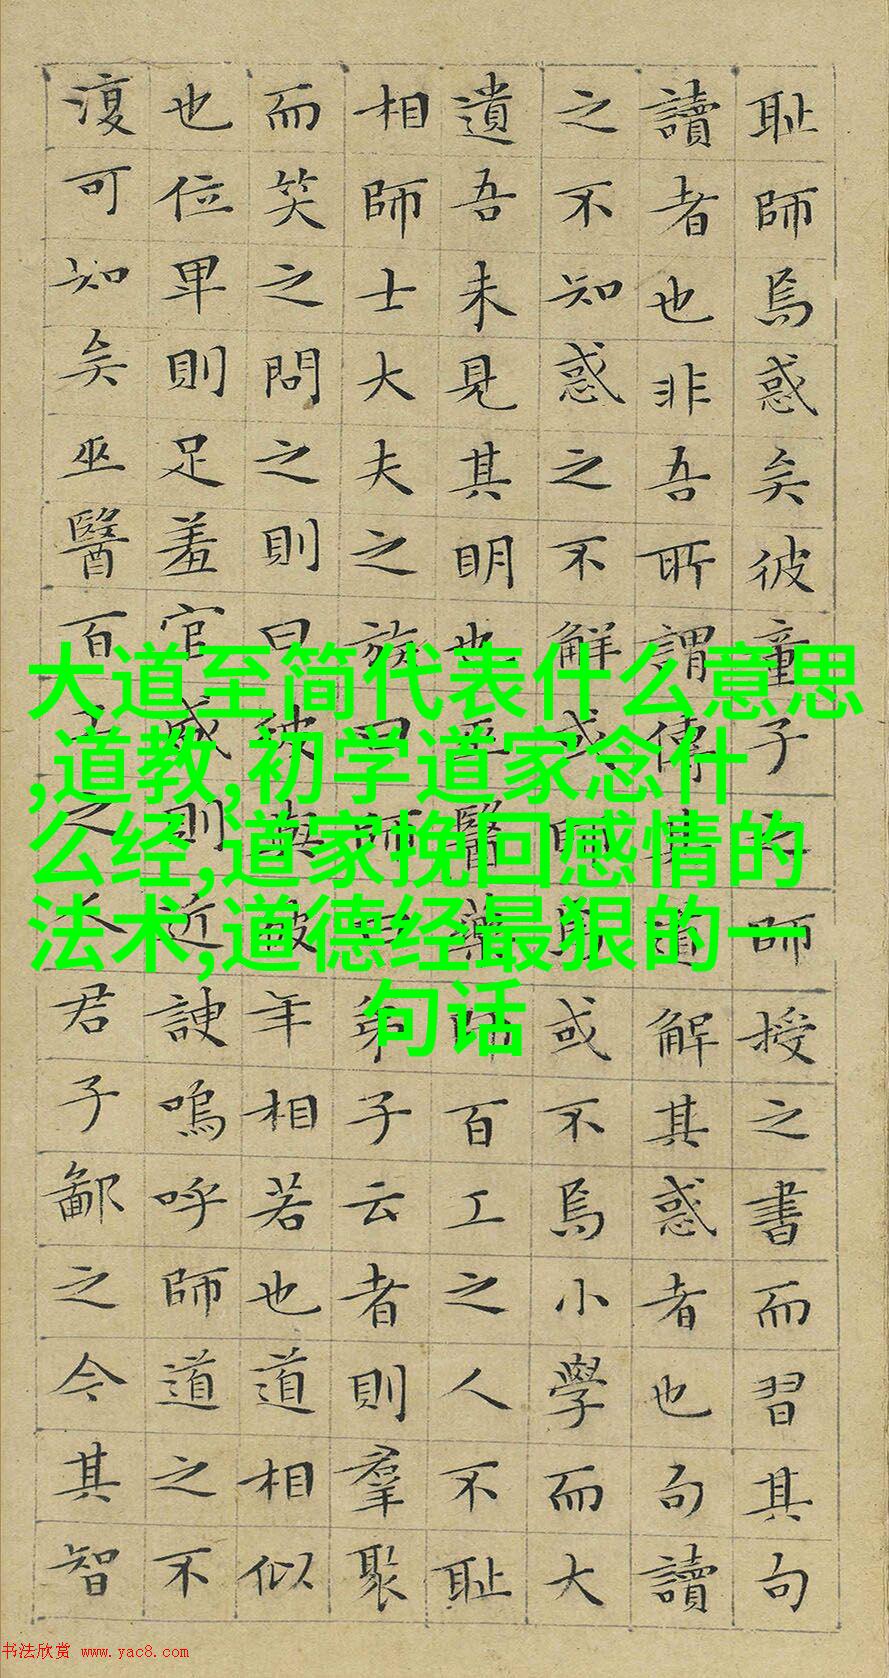 耻師焉惑矣彼童子之師授之書而習其句
讀者也非吾所謂傳其道解其惑者也句讀
之不知惑之不解或師焉或不焉小學而大
遺吾未見其明也巫醫藥師百工之人不耻
相師士大夫之族曰師曰弟子云者則羣聚
而笑之問之則曰彼與彼年相若也道相似
也位卑則足羞官盛則近諛嗚呼師道之不
復可知矣巫醫百工之人君子鄙之今其智
大道至简代表什么意思
,道教,初学道家念什
么经,道家挽回感情的
法术,道德经最狠的一
句话
书法欣赏 www.yac8.com